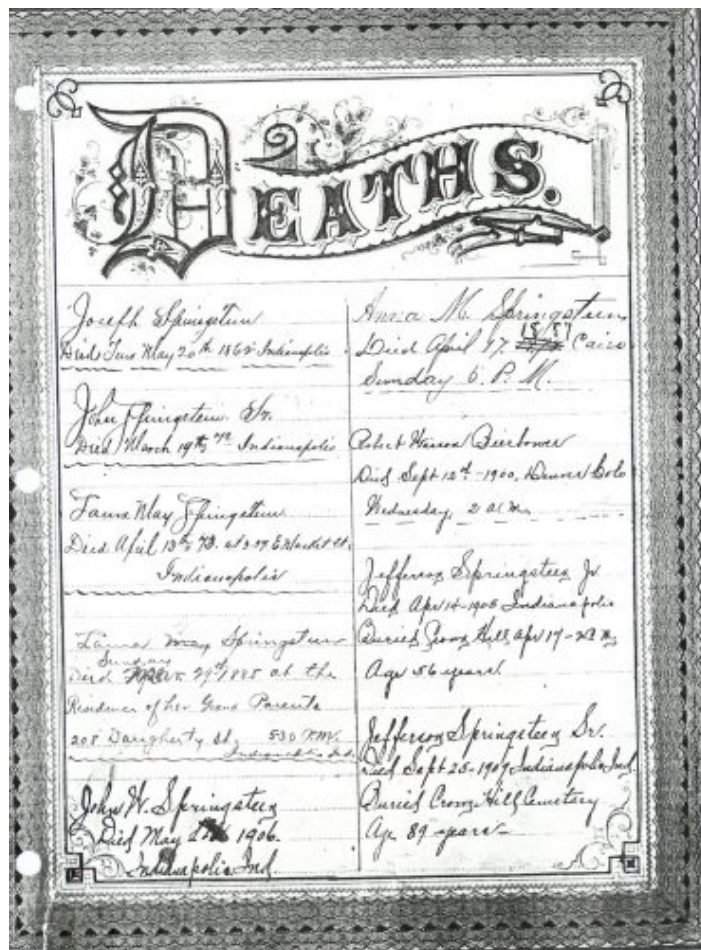 DEATHS.
Joseph Springsteen
Died Tues May 20th 1862 Indianapolis
John Springsteen Sr.
Died March 19th Indianapolis
May Springsteen
Died April 13th 73. at 307 E Market St.
Indianapolis
May Springsteen
Sunday
Died 29th 1885 at the
Residence of her Grand Parents
208 Daugherty St, 530 P.M.
Indianapolis Ind.
John W. Springsteen
Died May 1906.
Indianapolis Ind.
Anna M. Springsteen
18/87
Died April 17. Cairo
Sunday 6. P. M.
Robert Bierbower
Died Sept 12th - 1900. Denver Colo
Wednesday, 2 a.m.
Jefferson Springsteen Jr
Died Apr 14 - 1908 Indianapolis
Buried Crown Hill Apr 17 - 2 P.M.
Age 56 years.
Jefferson Springsteen Sr.
Died Sept 25 - 1909 Indianapolis Ind.
Buried Crown Hill Cemetery
Age 89 years -